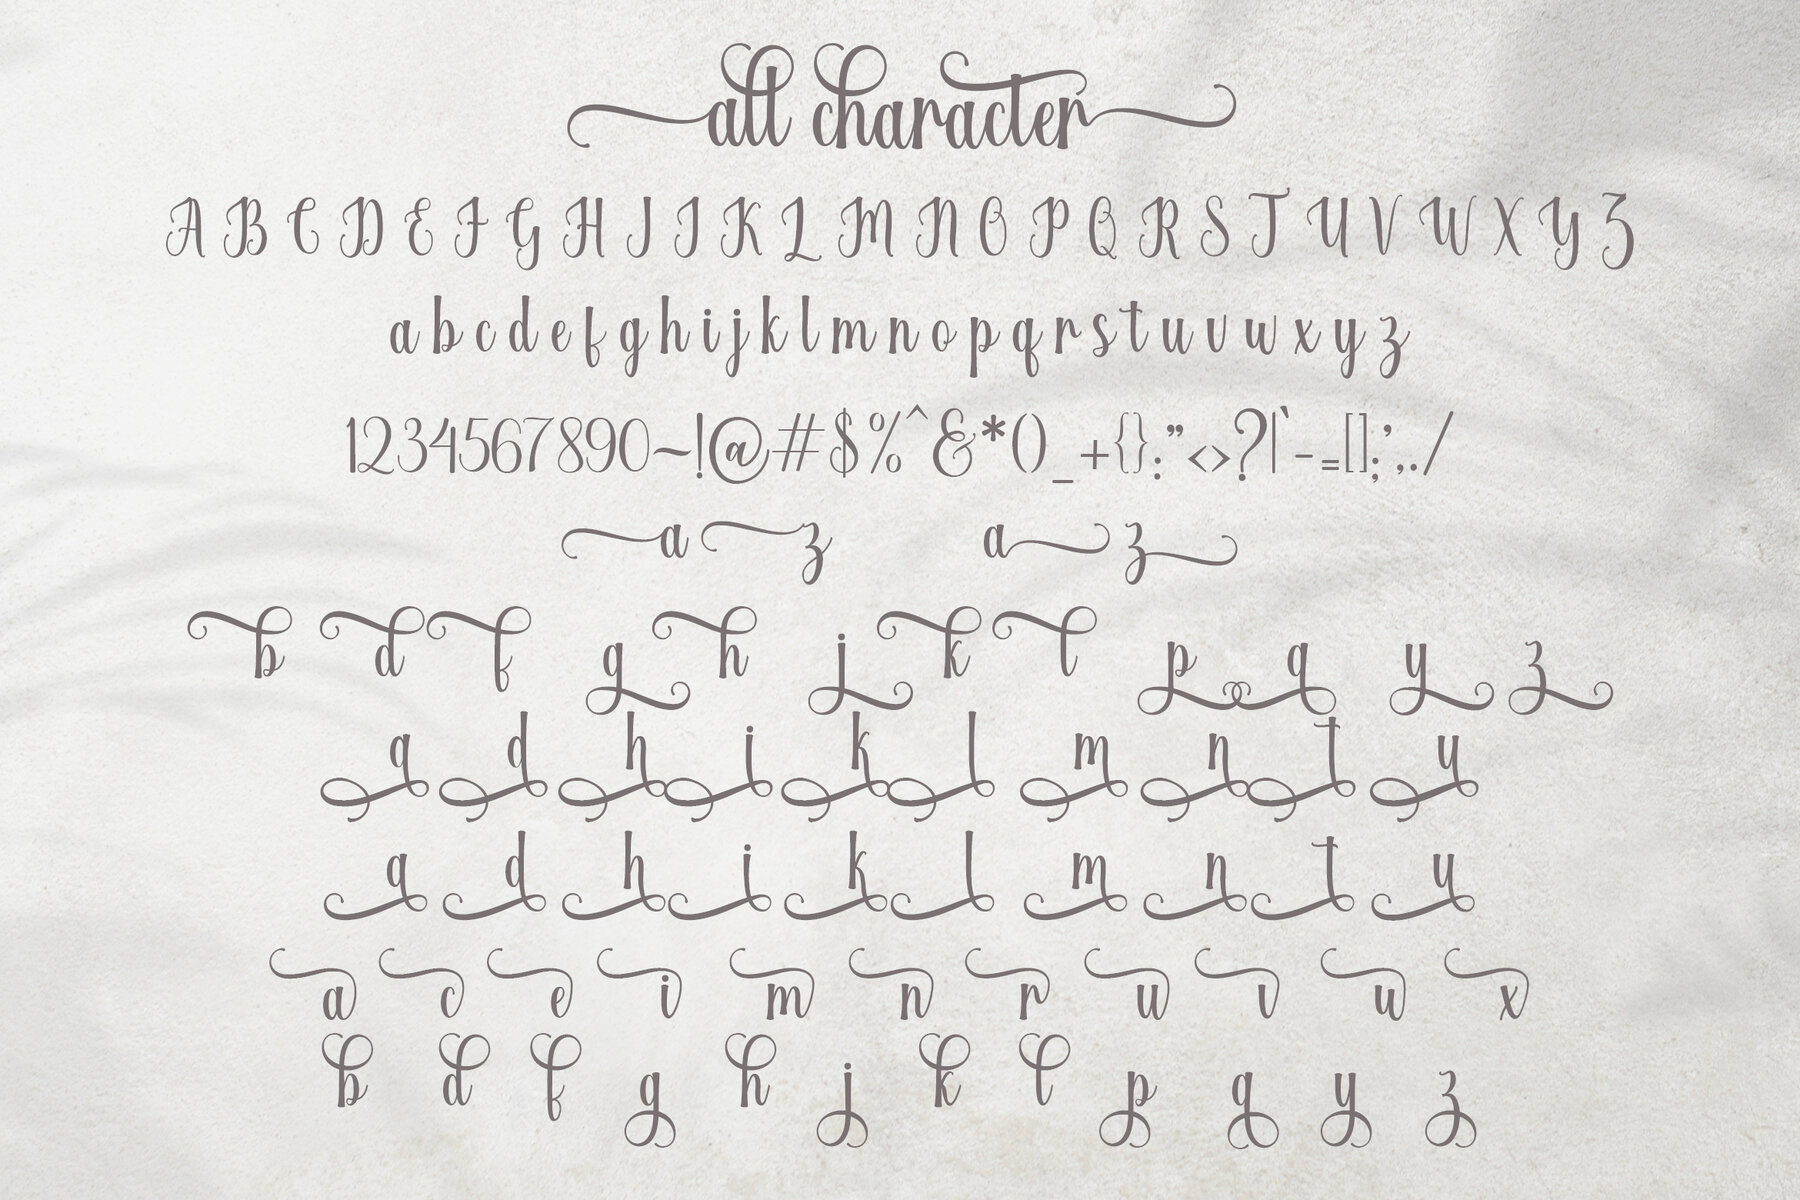 all character
A B C D E F G H I J K L M N O P Q R S T U V W X Y Z
a b c d e f g h i j k l m n o p q r s t u v w x y z
1234567890~!@#$%^&*()_+{}:"<>?|`-=[];',./
a z a z
b d f g h j k l p q y z
a d h i k l m n t u
a d h i k l m n t u
a c e i m n r u v u x
b d f g h j k l p q y z